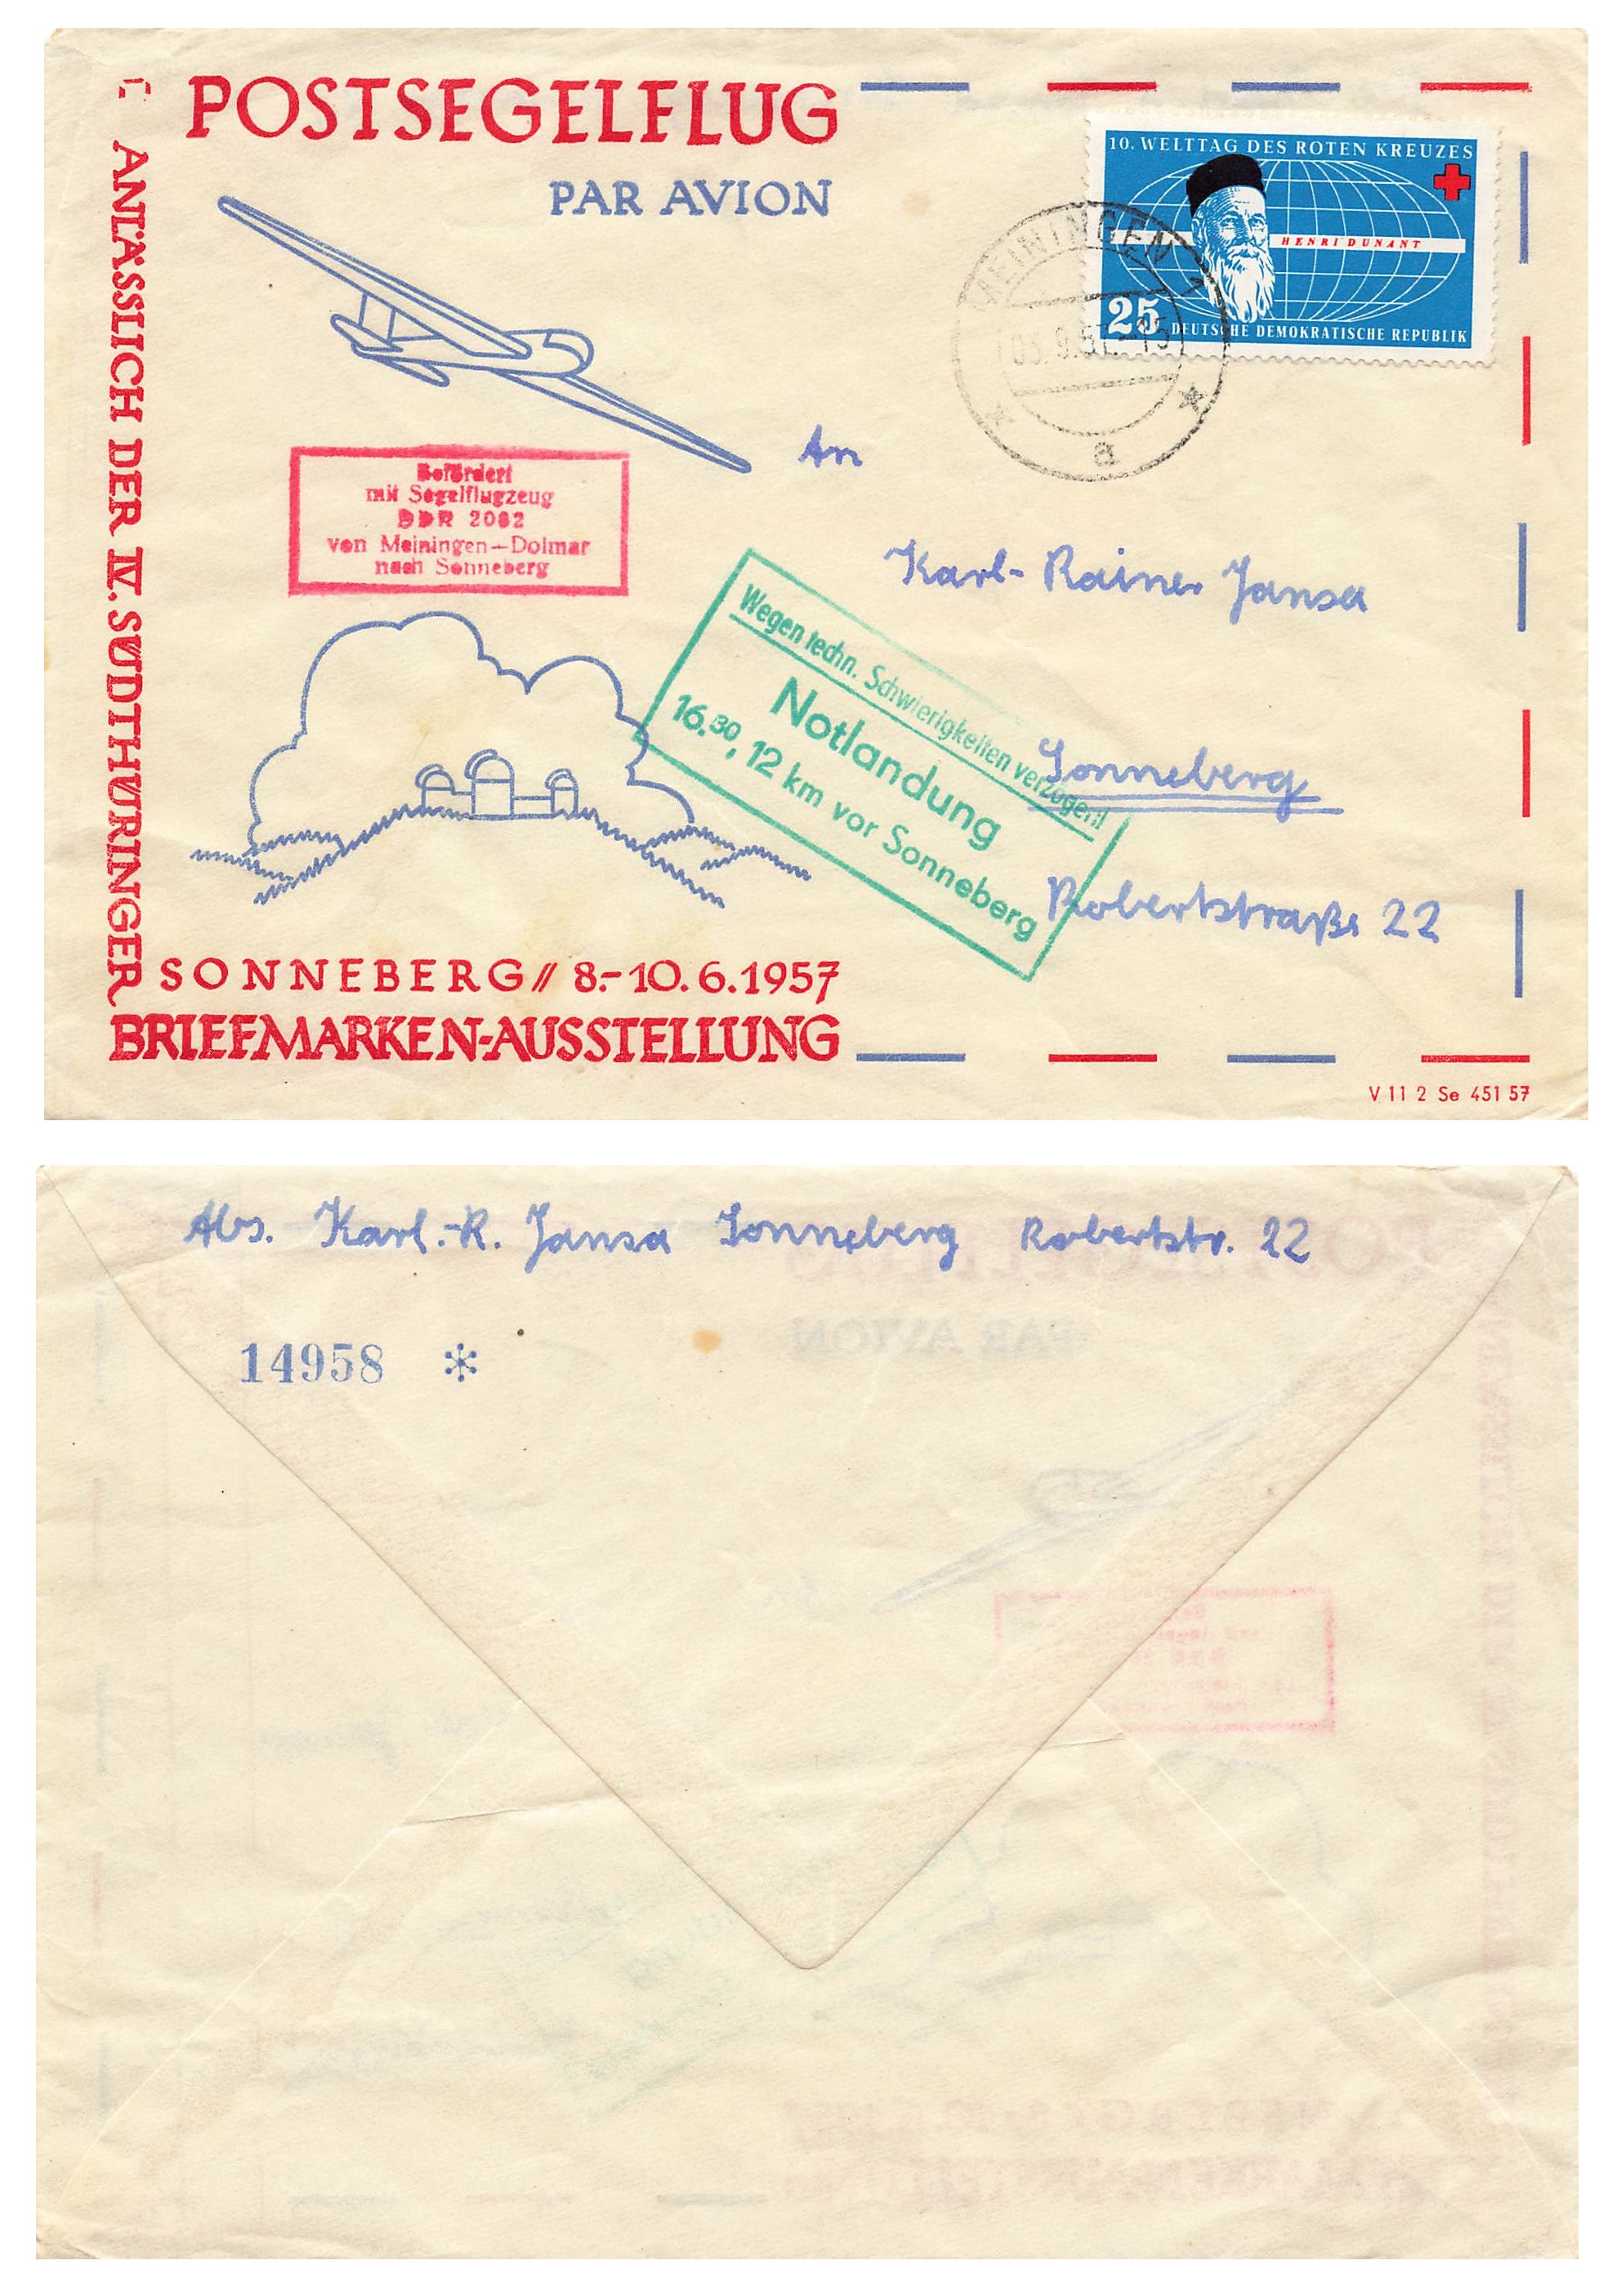 POSTSEGELFLUG
PAR AVION
ANLÄSSLICH DER IV. SÜDTHÜRINGER
10. WELTTAG DES ROTEN KREUZES
HENRI DUNANT
25 DEUTSCHE DEMOKRATISCHE REPUBLIK
MEININGEN 1
a
Befördert
mit Segelflugzeug
DDR 2062
von Meiningen-Dolmar
nach Sonneberg
An
Karl-Rainer Jansa
Wegen techn. Schwierigkeiten verzögert!
Notlandung
16.30, 12 km vor Sonneberg
Sonneberg
Robertstraße 22
SONNEBERG // 8.-10.6.1957
BRIEFMARKEN-AUSSTELLUNG
V 11 2 Se 451 57
Abs. Karl.-R. Jansa Sonneberg Robertstr. 22
14958 *